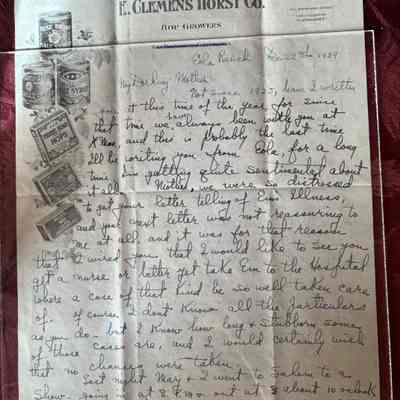 E. CLEMENS HORST CO.
HOP GROWERS
Eola Ranch Dec 22nd 1929
My Darling Mother:-
Not since 1923, have I written
at this time of the year, for since
that time we have always been with you at
X Mas, and this is probably the last time
I'll be writing you from Eola for a long
time. I'm getting quite sentimental about
it all. Mother, we were so distressed
to get your letter telling of Em's Illness,
and your next letter was not reassuring to
me at all, and it was for that reason
that I wired you that I would like to see you
get a nurse or better yet take Em to the Hospital
where a case of that kind be so well taken care
of. Of course I don't know all the particulars
as you do - but I know how long & stubborn some
of those cases are, and I would certainly wish
that no chances were taken.
Last night Mary & I went to Salem to a
Show, going in at 8 P.M. out at about 10 o'clock